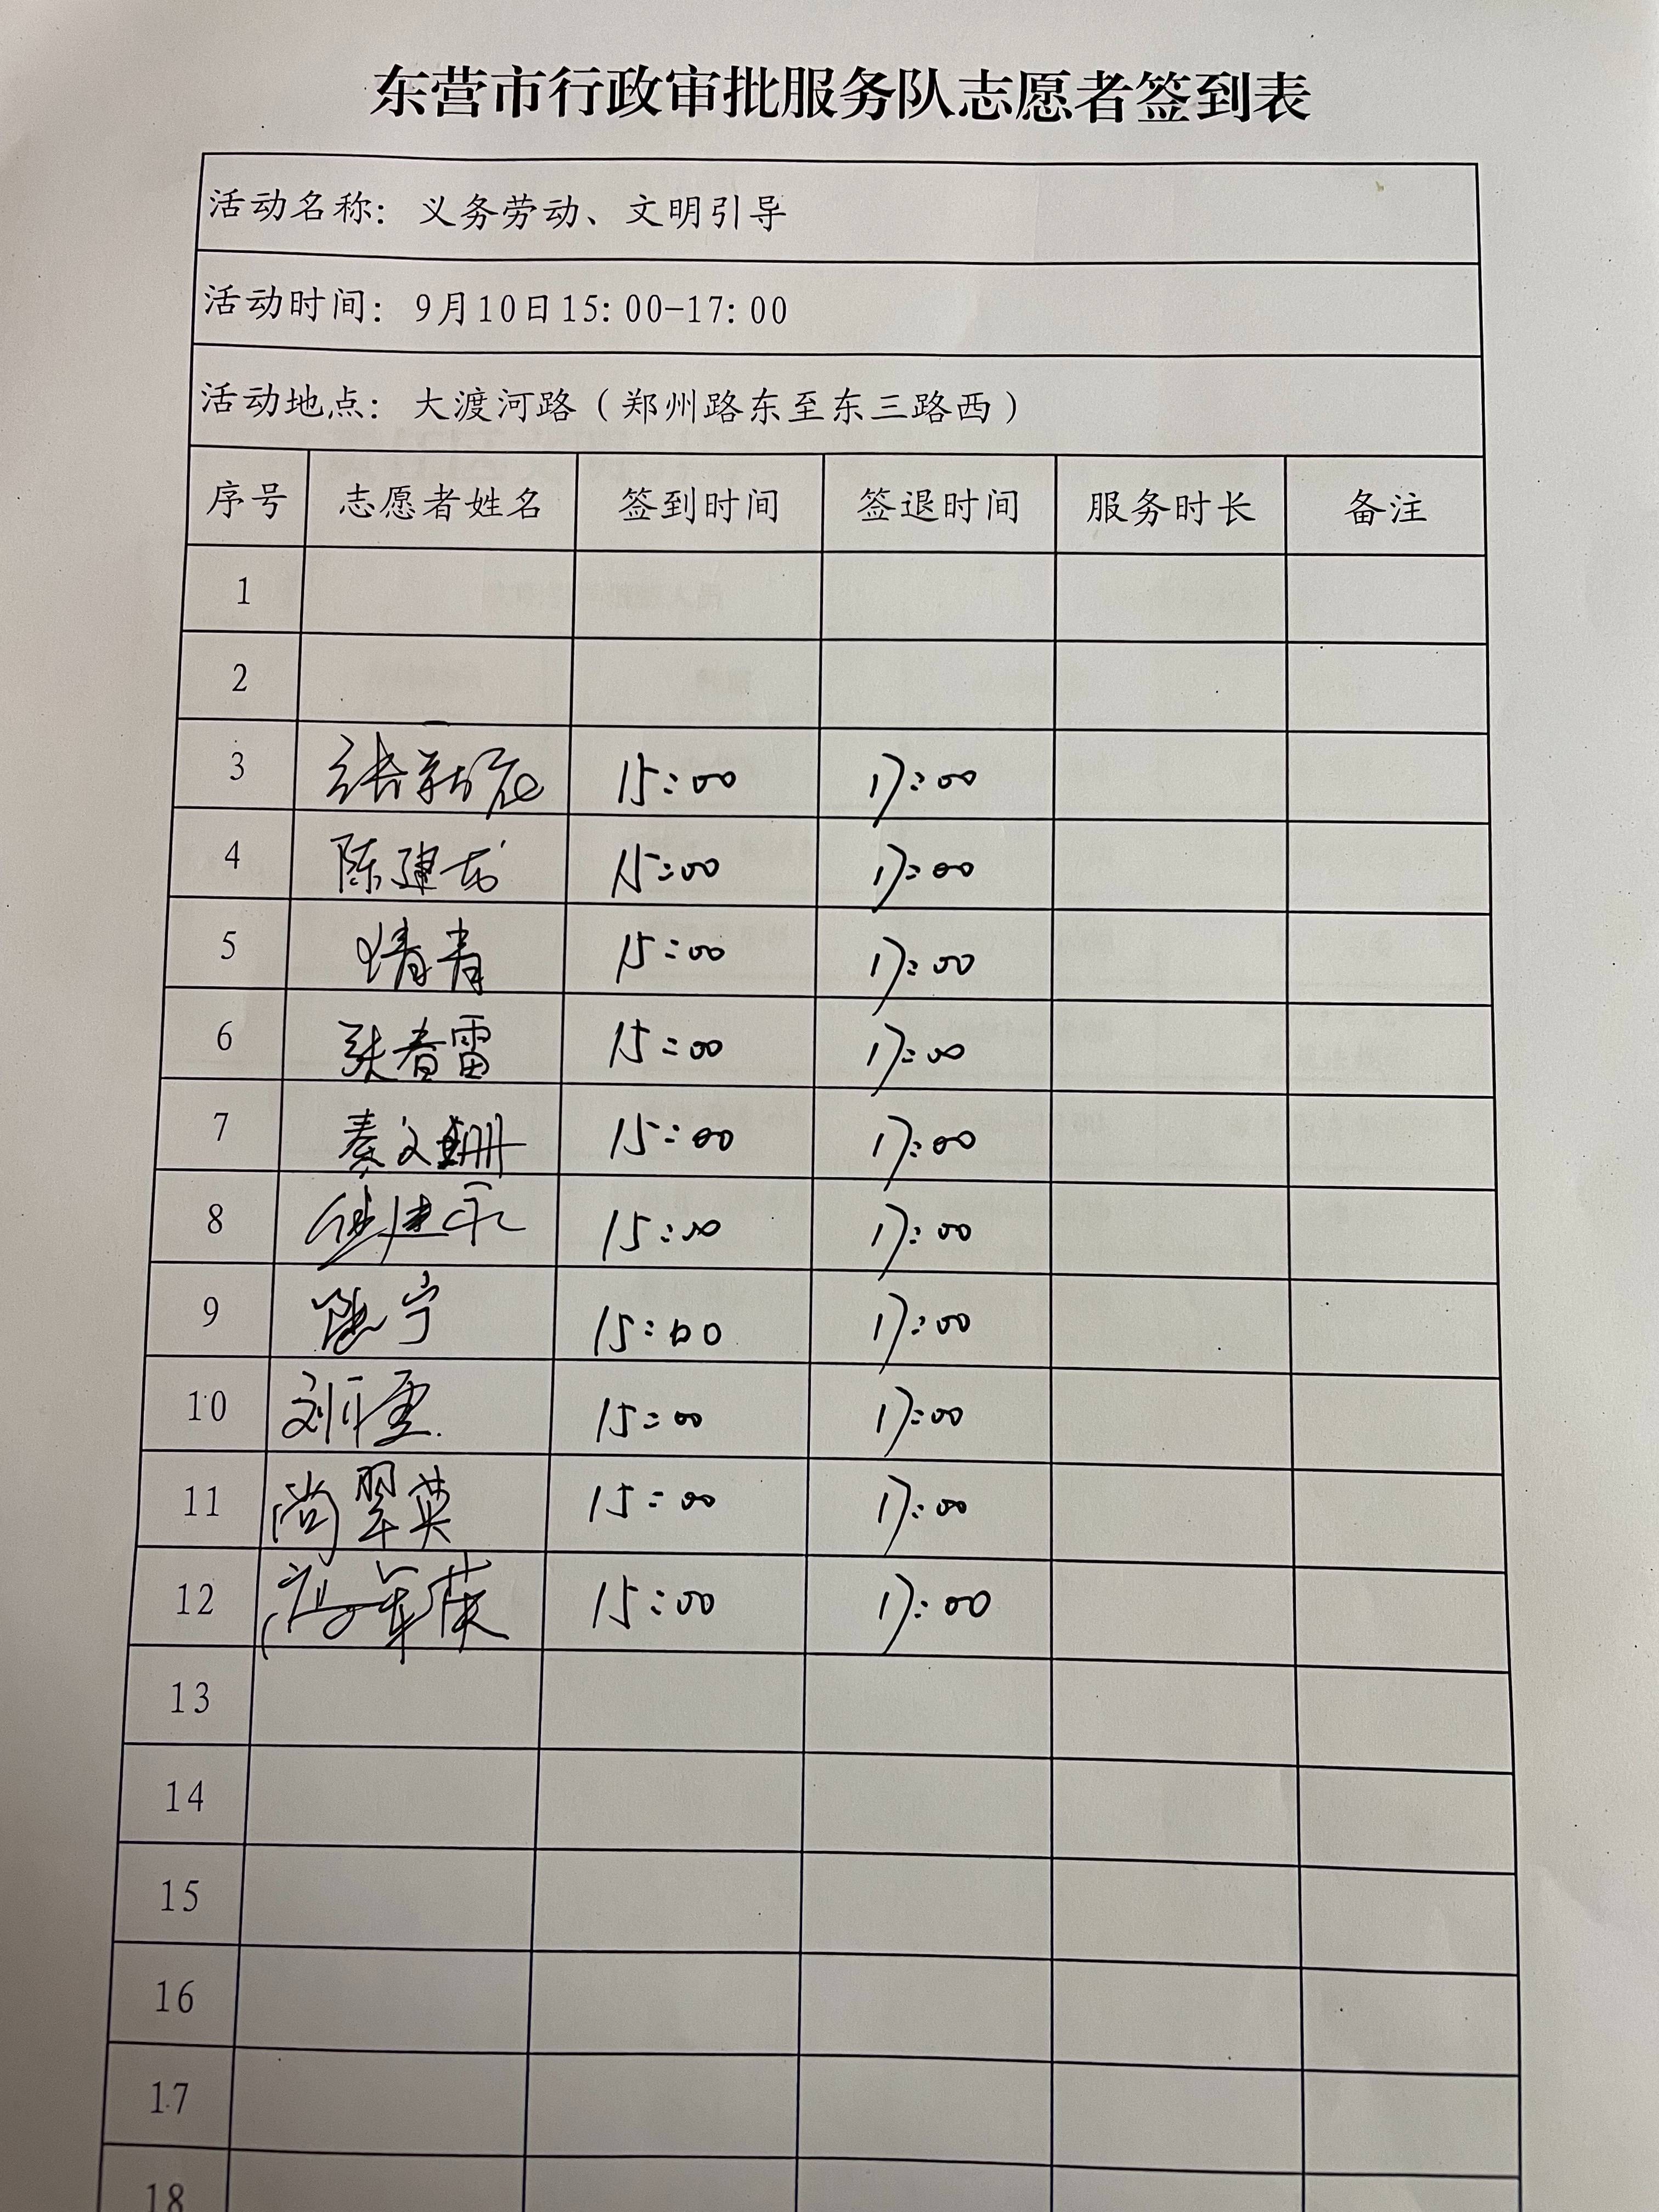 东营市行政审批服务队志愿者签到表
活动名称：义务劳动、文明引导
活动时间：9月10日15：00-17：00
活动地点：大渡河路（郑州路东至东三路西）
序号 志愿者姓名 签到时间 签退时间 服务时长 备注
1
2
3 15:00 17:00
4 陈建 15:00 17:00
5 15:00 17:00
6 张春雷 15:00 17:00
7 秦文珊 15:00 17:00
8 15:00 17:00
9 陈宁 15:00 17:00
10 刘 15:00 17:00
11 尚翠英 15:00 17:00
12 冯 荣 15:00 17:00
13
14
15
16
17
18